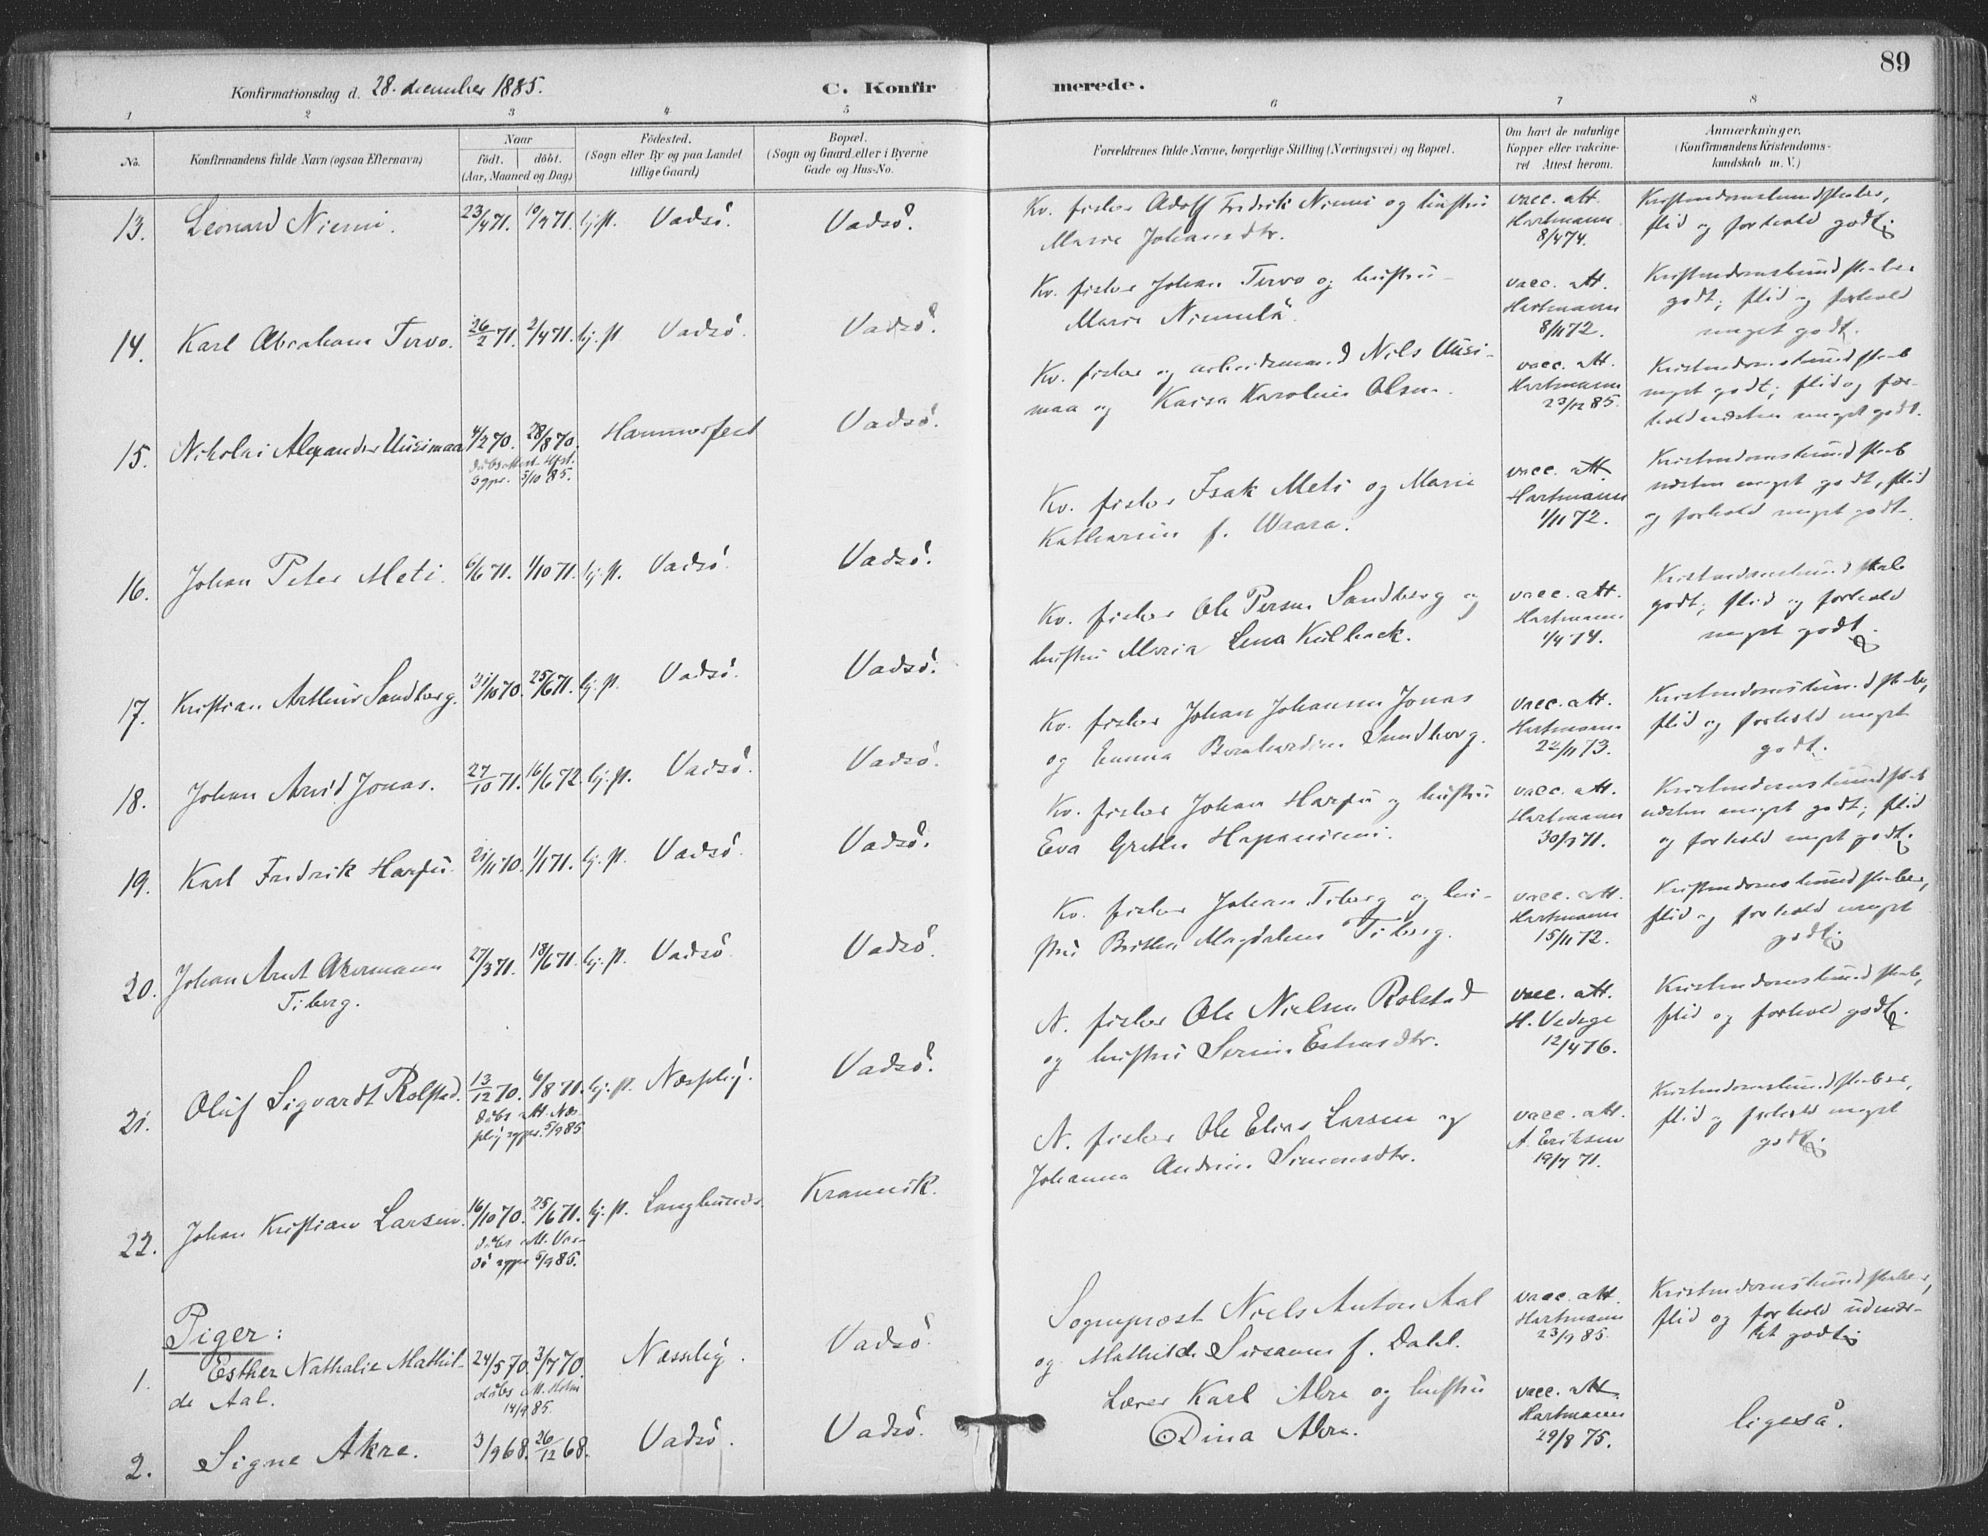 89
Konfirmationsdag d. 28. december 1885. C. Konfirmerede.
1 2 3 4 5 6 7 8
No. Konfirmandens fulde Navn (ogsaa Efternavn) Naar födt. döbt. (Aar, Maaned og Dag) Födested. (Sogn eller By og paa Landet tillige Gaard) Bopæl. (Sogn og Gaard eller i Byerne Gade og Hus-No. Forældrenes fulde Navne, borgerlige Stilling (Næringsvei) og Bopæl. Om havt de naturlige Kopper eller vakcineret Attest herom. Anmærkninger, (Konfirmandens Kristendomskundskab m. V.)
13. Leonard Niemi. 23/4 71. 10/9 71. hj. st. Vadsö. Vadsö. Kv. fisker Adolf Fredrik Niemi og hustru
Marie Johansdtr. vacc. att. Hartmann 8/4 74. Kristendomskundskaber,
flid og forhold godt.
14. Karl Abraham Tervo. 26/2 71. 2/4 71. hj. st. Vadsö. Vadsö. Kv. fisker Johan Tervo og hustru
Marie Niemelä. vacc. att. Hartmann 8/11 72. Kristendomskundskaber
godt; flid og forhold
meget godt.
15. Nikolai Alexander Uusimaa 4/2 70. 28/8 70. Hammerfest Vadsö. Kv. fisker og arbeidsmand Nils Uusi-
maa og Kaisa Karoline Olsen. vacc. att. Hartmann 23/12 85. Kristendomskundskab
meget godt; flid og for-
hold næsten meget godt.
döbsattest Hfst.
5/10 85.
16. Johan Peter Meti. 6/6 71. 1/10 71. hj. st. Vadsö. Vadsö. Kv. fisker Isak Meti og Marie
Katharine f. Waara. vacc. att. Hartmann 1/11 72. Kristendomskundskab
næsten meget godt, flid
og forhold meget godt.
17. Kristian Arthur Sandberg. 31/10 70. 25/6 71. hj. st. Vadsö. Vadsö. Kv. fisker Ole Persen Sandberg og
hustru Maria Lena Kulback. vacc. att. Hartmann 1/4 74. Kristendomskundskab
godt; flid og forhold
meget godt.
18. Johan Arvid Jonas. 27/10 71. 16/6 72. hj. st. Vadsö. Vadsö. Kv. fisker Johan Johansen Jonas
og Emma Bernhardine Sandberg. vacc. att. Hartmann 22/11 73. Kristendomskundskaber,
flid og forhold meget
godt.
19. Karl Fredrik Harju. 21/11 70. 1/1 71. hj. st. Vadsö. Vadsö. Kv. fisker Johan Harju og hustru
Eva Grethe Hapaniemi. vacc. att. Hartmann 30/9 71. Kristendomskundskab
næsten meget godt; flid
og forhold meget godt.
20. Johan Arnt Akermann
Tiberg. 27/3 71. 18/6 71. hj. st. Vadsö. Vadsö. Kv. fisker Johan Tiberg og hu-
stru Brithe Magdalena Tiberg. vacc. att. Hartmann 15/11 72. Kristendomskundskaber,
flid og forhold meget
godt.
21. Oluf Sigvardt Rolstad. 13/12 70. 6/8 71. hj. st. Næsseby. Vadsö. N. fisker Ole Nielsen Rolstad
og hustru Serine Estensdtr. vacc. att. H. Vedege 12/4 76. Kristendomskundskab,
flid og forhold godt.
döbs att. Næs-
5/9 85
22. Johan Kristian Larsen. 16/10 70. 25/6 71. hj. st. Langbunes. Kramvik. N. fisker Ole Elias Larsen og
Johanna Andrine Simonsdtr. vacc. att. A. Eriksen 19/7 71. Kristendomskundskaber,
flid og forhold meget
godt.
döbs att. Var-
dö 5/9 85.
Piger:
1. Esther Nathalie Mathil-
de Aal. 24/5 70. 3/7 70. Næsseby. Vadsö. Sogneprost Niels Anton Aal
og Mathilde Susanne f. Dahl. vacc. att. Hartmann 23/9 85. Kristendomskundskaber,
flid og forhold udmær-
ket godt.
döbs att. Holm
14/9 85.
2. Signe Akre. 3/9 68. 26/12 68. Vadsö. Vadsö. Lærer Karl Akre og hustru
Dina Akre. vacc. att. Hartmann 29/8 75. ligeså.